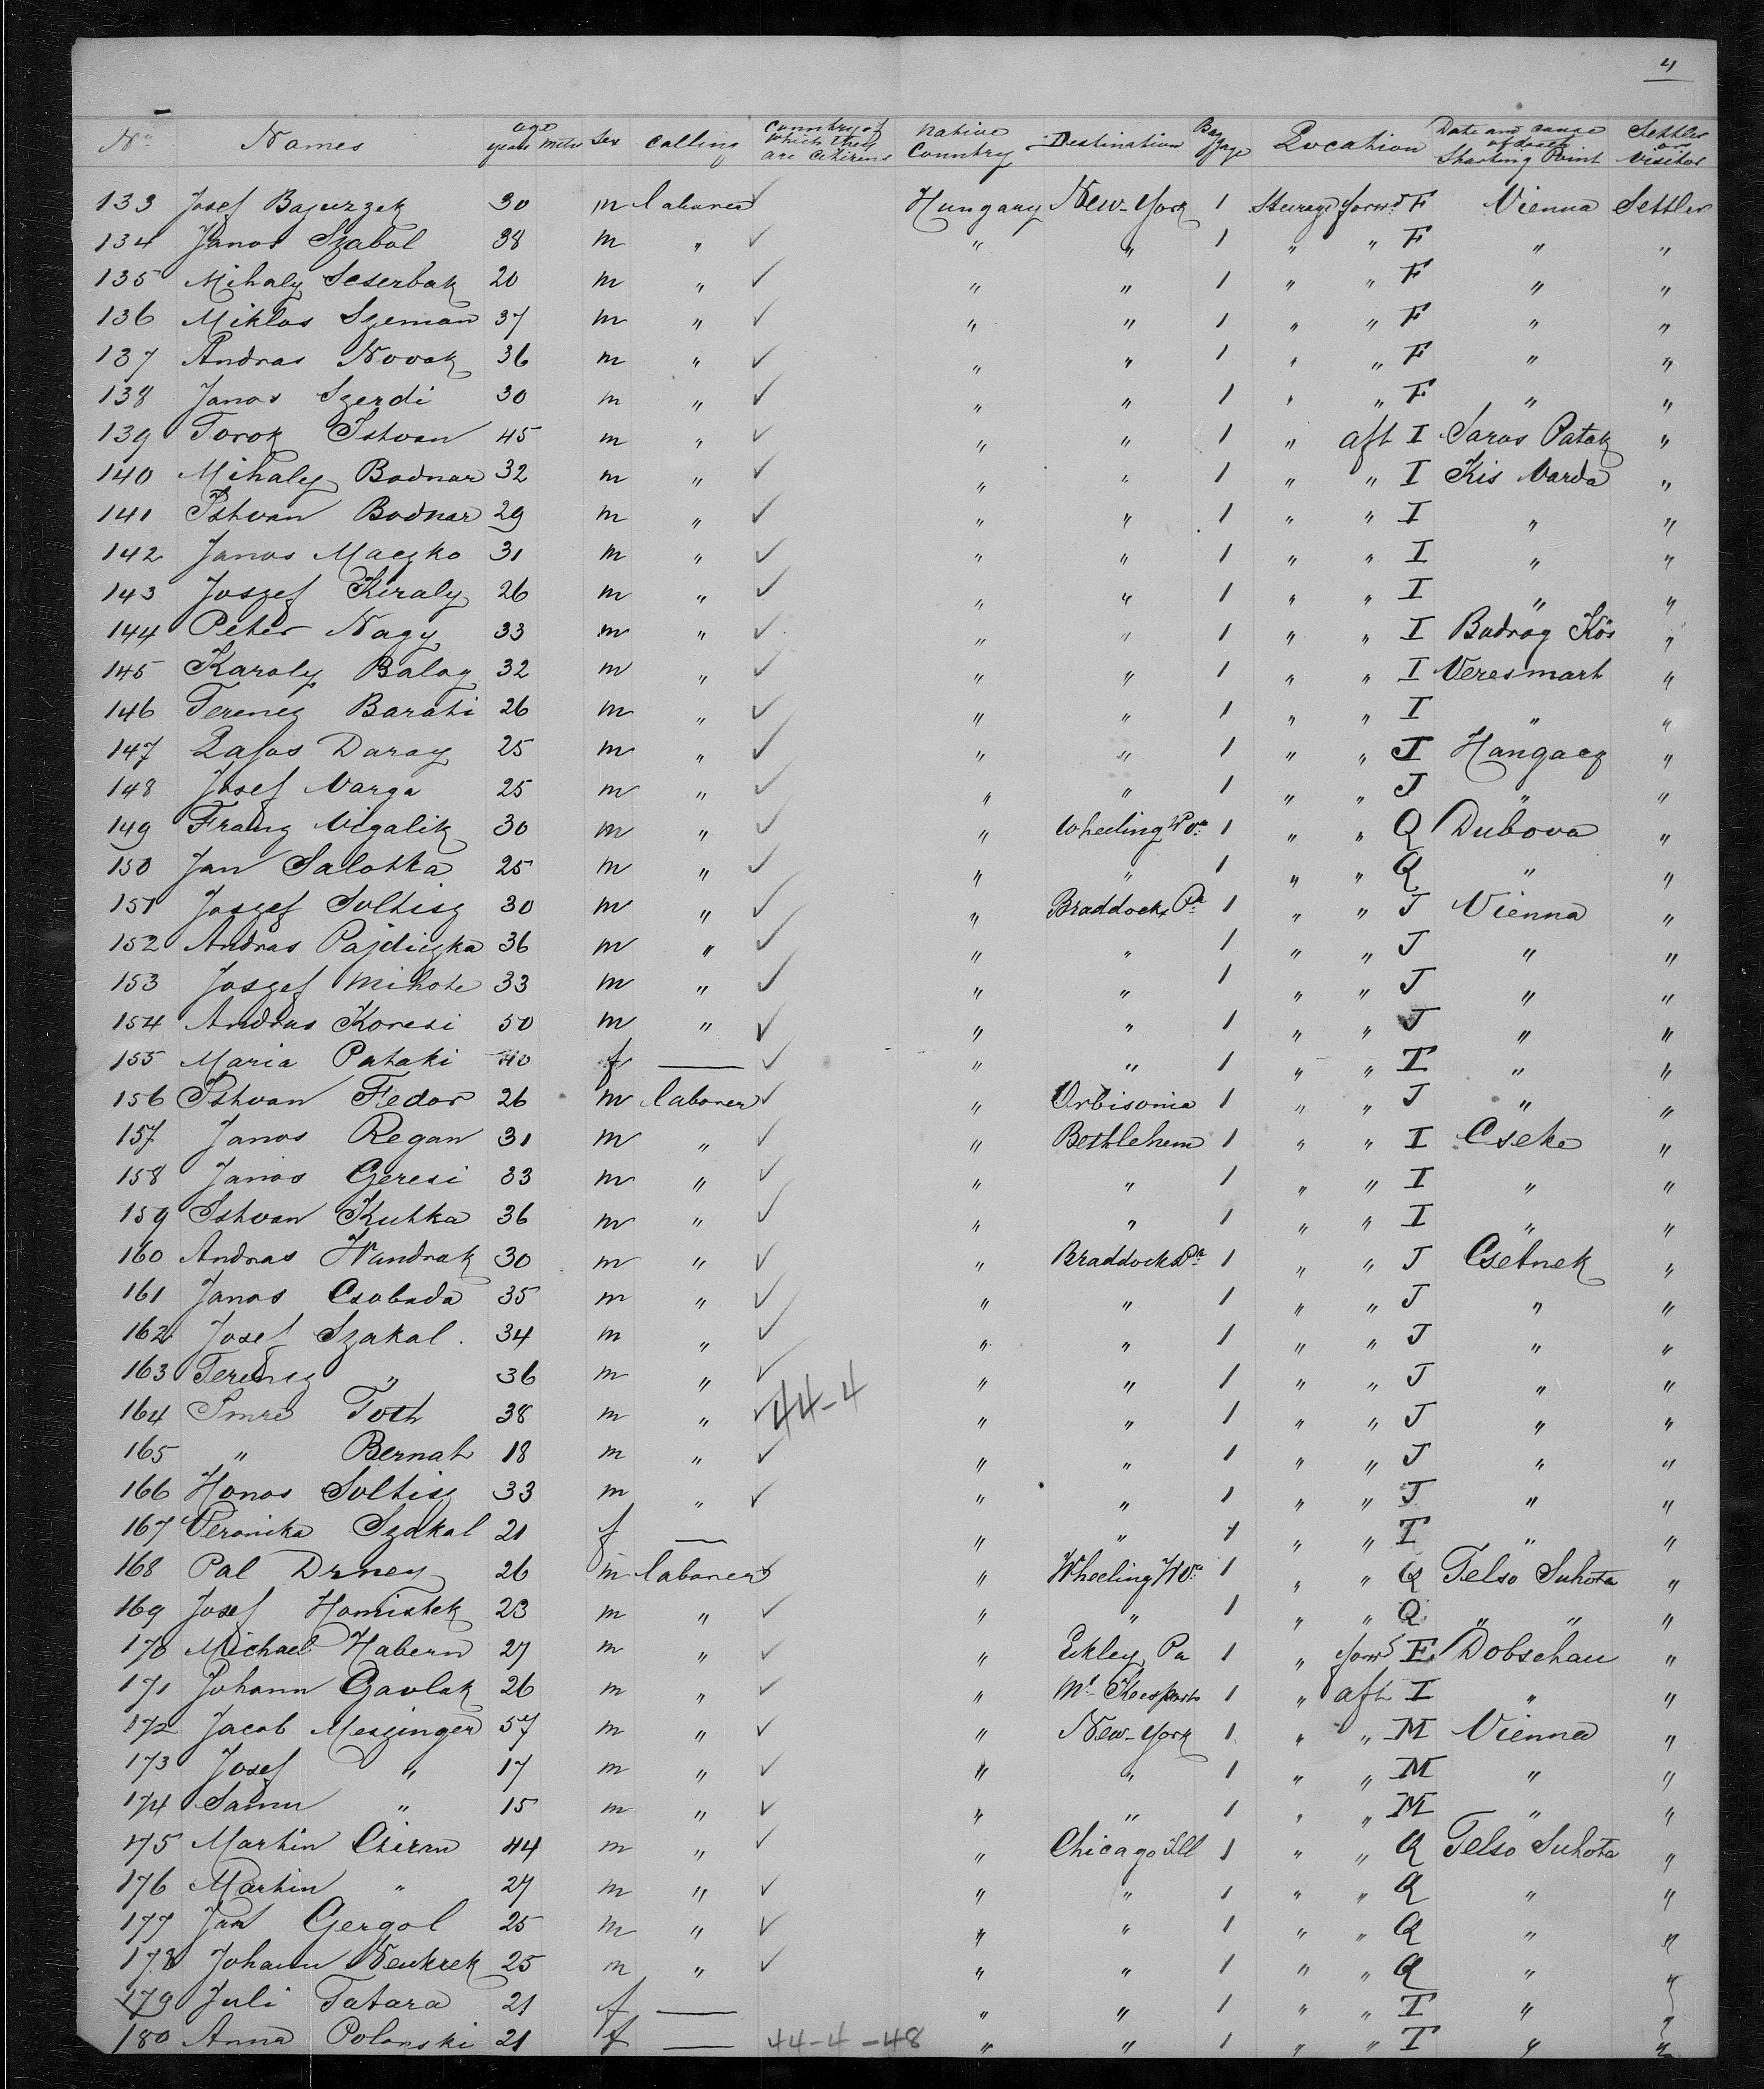 4
No Names age years mths Sex calling Country of which they are Citizens native Country Destination Bag gage Location Date and cause of death Starting Point Settler or Visitor
133 Josef Bajurzek 30 m laborer ✓ Hungary New-York 1 Steerage forwd F Vienna Settler
134 Janos Szabol 38 m " ✓ " " 1 " " F " "
135 Mihaly Scserbak 20 m " ✓ " " 1 " " F " "
136 Miklos Szeman 37 m " ✓ " " 1 " " F " "
137 Andras Novak 36 m " ✓ " " 1 " " F " "
138 Janos Szerdi 30 m " ✓ " " 1 " " F " "
139 Torok Istvan 45 m " ✓ " " 1 " aft I Saros Patak "
140 Mihaly Bodnar 32 m " ✓ " " 1 " " I Kis Varda "
141 Istvan Bodnar 29 m " ✓ " " 1 " " I " "
142 Janos Maczko 31 m " ✓ " " 1 " " I " "
143 Joszef Kiraly 26 m " ✓ " " 1 " " I " "
144 Peter Nagy 33 m " ✓ " " 1 " " I Bodrog Kös "
145 Karoly Balog 32 m " ✓ " " 1 " " I Veresmart "
146 Ferencz Barati 26 m " ✓ " " 1 " " I " "
147 Lajos Daray 25 m " ✓ " " 1 " " J Hangacz "
148 Josef Varga 25 m " ✓ " " 1 " " J " "
149 Franz Vigalik 30 m " ✓ " Wheeling W Va 1 " " Q Dubova "
150 Jan Salotka 25 m " ✓ " " 1 " " Q " "
151 Joszef Soltisz 30 m " ✓ " Braddocks Pa 1 " " J Vienna "
152 Andras Pajdiczka 36 m " ✓ " " 1 " " J " "
153 Joszef Mihote 33 m " ✓ " " 1 " " J " "
154 Andras Koresi 50 m " ✓ " " 1 " " J " "
155 Maria Pataki 40 f — ✓ " " 1 " " T " "
156 Istvan Fedor 26 m laborer ✓ " Orbisonia 1 " " J " "
157 Janos Regan 31 m " ✓ " Bethlehem 1 " " I Cseke "
158 Janos Geresi 33 m " ✓ " " 1 " " I " "
159 Istvan Kutka 36 m " ✓ " " 1 " " I " "
160 Andras Wandrak 30 m " ✓ " Braddocks Pa 1 " " J Csetnek "
161 Janos Csobada 35 m " ✓ " " 1 " " J " "
162 Josef Szakal 34 m " ✓ " " 1 " " J " "
163 Ferencz " 36 m " ✓ " " 1 " " J " "
164 Imre Toth 38 m " ✓ 44-4 " " 1 " " J " "
165 " Bernat 18 m " ✓ " " 1 " " J " "
166 Honos Soltisz 33 m " ✓ " " 1 " " J " "
167 Veronika Szakal 21 f — " " 1 " " T " "
168 Pal Drney 26 m laborer ✓ " Wheeling W Va 1 " " Q Felso Suhota "
169 Josef Homistek 23 m " ✓ " " 1 " " Q " " "
170 Michael Habern 27 m " ✓ " Ekley Pa 1 " forwd F Dobschau "
171 Johann Gavlak 26 m " ✓ " Mc Keesports 1 " aft I " "
172 Jacob Meszinger 57 m " ✓ " New-York 1 " " M Vienna "
173 Josef " 17 m " ✓ " " 1 " " M " "
174 Samu " 15 m " ✓ " " 1 " " M " "
175 Martin Cziran 44 m " ✓ " Chicago Ill 1 " " Q Felso Suhota "
176 Martin " 27 m " ✓ " " 1 " " Q " "
177 Jan Gergol 25 m " ✓ " " 1 " " Q " "
178 Johann Newkrek 25 m " ✓ " " 1 " " Q " "
179 Juli Tatara 21 f — " " 1 " " T " "
180 Anna Polanski 21 f — 44-4-48 " " 1 " " T " "